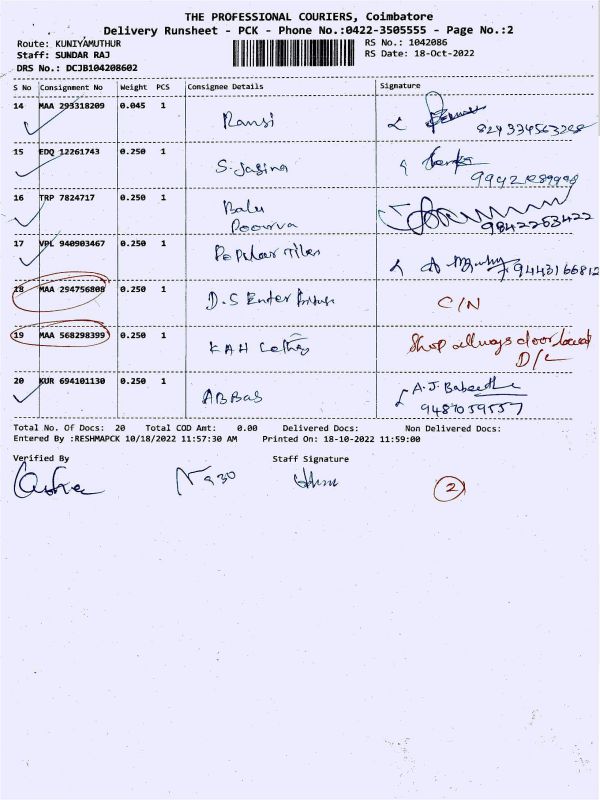 THE PROFESSIONAL COURIERS, Coimbatore
Delivery Runsheet - PCK - Phone No.:0422-3505555 - Page No.:2
Route: KUNIYAMUTHUR RS No.: 1042086
Staff: SUNDAR RAJ RS Date: 18-Oct-2022
DRS No.: DCJB104208602
S No Consignment No Weight PCS Consignee Details Signature
14 MAA 293318209 0.045 1 Ransi
15 EDQ 12261743 0.250 1 S.Jasina
16 TRP 7824717 0.250 1 Balu
Poorva 9842263422
17 VPL 940903467 0.250 1 Popular Tiles 9443166812
18 MAA 294756808 0.250 1 D.S Enter C/N
19 MAA 568298399 0.250 1 KAH Shop always door
D/L
20 KUR 694101130 0.250 1 ABBAS A.J.
9487059557
Total No. Of Docs: 20 Total COD Amt: 0.00 Delivered Docs: Non Delivered Docs:
Entered By :RESHMAPCK 10/18/2022 11:57:30 AM Printed On: 18-10-2022 11:59:00
Verified By Staff Signature
2